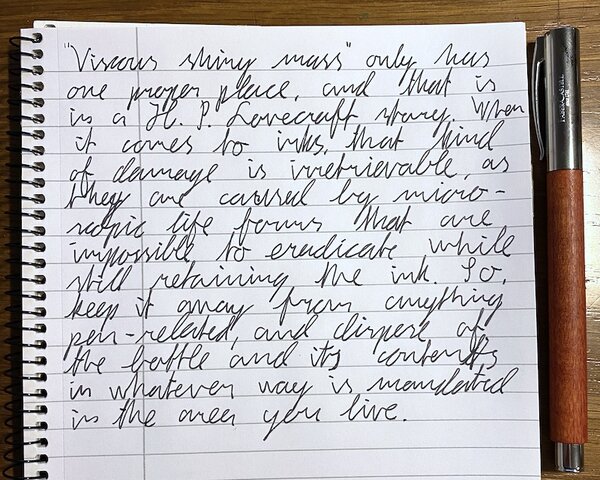 "Viscous shiny mass" only has
one proper place, and that is
in a H. P. Lovecraft story. When
it comes to inks, that kind
of damage is irretrievable, as
they are caused by micro-
scopic life forms that are
impossible to eradicate while
still retaining the ink. So,
keep it away from anything
pen-related, and dispose of
the bottle and its contents
in whatever way is mandated
in the area you live.